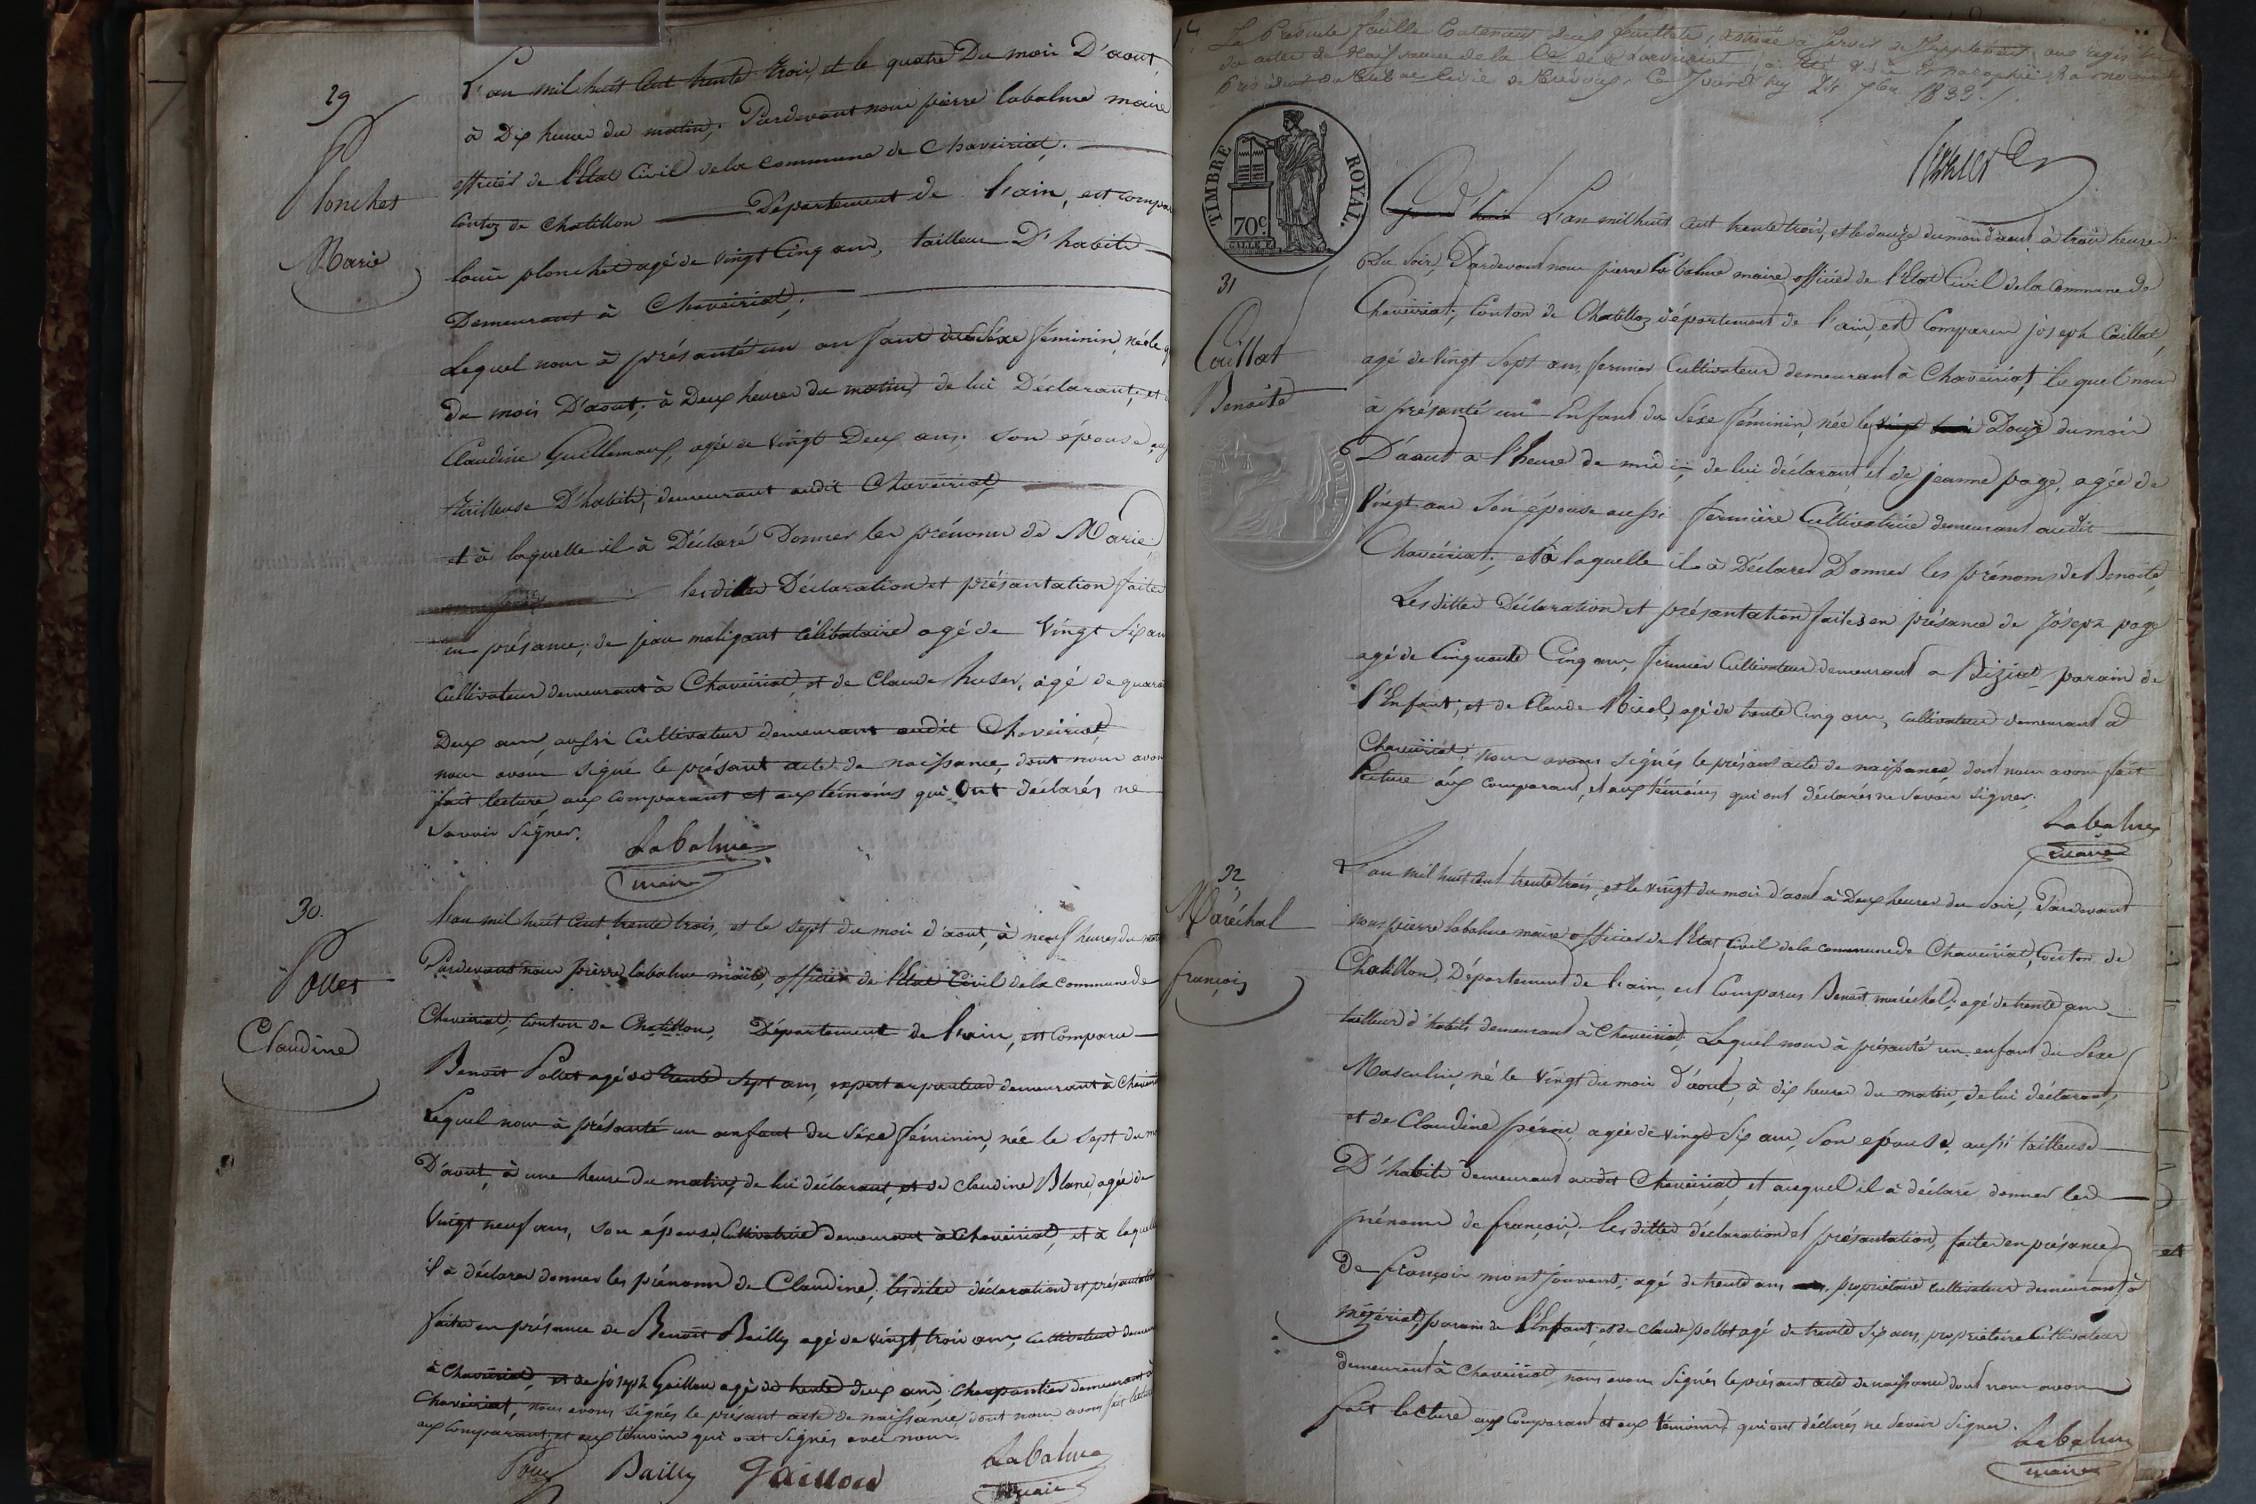 29
Plonchet
Marie
L'an mil huit cent trente trois, et le quatre Du mois D'aout,
à Dix heures du matin, Pardevant nous pierre labalme maire
officier de l'Etat Civil de la Commune de Chaveiriat,
Conton de Chatillon Département de l'ain, est compa
louis plonchet agé de vingt Cinq ans, tailleur D'habits
Demeurant à Chaveiriat,
Lequel nous à présanté un anfant du Séxe féminin, née le
du mois D'aout, à Deux heures du matin, de lui Déclarant, et
Claudine Guillemaud, agée de vingt Deux ans. Son épouse,
tailleuse D'habits, demeurant audit Chaveiriat,
et à laquelle il à Déclaré Donner les prénoms de Marie
lesdittes Déclaration et présantation faites
en présance, de jean maligant célibataire agé de Vingt Six ans
Cultivateur demeurant à Chaveiriat, et de Claude huser, agé de quara
Deux ans, aussi Cultivateur demeurant audit Chaveiriat,
nous avons signé le présant acte de naissance, dont nous avons
fait lecture, aux comparant et aux témoins qui Ont déclarés ne
Savoir Signer.
Labalme
maire
30.
Pollet
Claudine
L'an mil huit Cent trente trois, et le Sept du mois d'aout, à neuf heures du
Pardevant nous pierre labalme maire, officier de l'Etat Civil de la commune de
Chaveiriat, Conton de Chatillon, Département de l'ain, est Comparu
Benoit Pollet agé de trente Sept ans, expert arpenteur demeurant à Chaveiri
Lequel nous à présanté un anfant du Séxe féminin, née le Sept du
D'aout, à une heure du matin, de lui déclarant, et de Claudine Blanc, agée de
Vingt neuf ans, Son épouse, Cultivatrice demeurant à Chaveiriat, et à laquelle
il à déclarer donner les prénoms de Claudine, lesdites déclaration et présantation
faites en présance de Benoit Bailly agé de vingt trois ans, Cultivateur demeu
à Chaveiriat, et de joseph Gaillou agé de trente deux ans, Charpantier demeurant à
Chaveiriat, nous avons signés le présant acte de naissance, dont nous avons fait lecture
aux comparant, et aux témoins qui ont signés avec nous.
Bailly Gaillou Labalme
maire
La Présente feuille Contenant deux feuillets, destinée à Servir de Supplément aux registres
des actes de Naissance de la Cne de Chaveiriat, a été
TIMBRE ROYAL.
70c.
L'an mil huit cent trente trois, et le douze du mois d'aout à trois heures
Du Soir, Pardevant nous pierre labalme maire, officier de l'Etat Civil de la Commune de
Chaveiriat, Conton de Chatillon département de l'ain, est Comparu joseph Caillat,
31
Caillat
Benoite
agé de Vingt Sept ans, fermier Cultivateur demeurant à Chaveiriat, lequel nous
à présanté un Enfant du Séxe féminin, née le Douze du mois
D'aout a l'heure de midi, de lui déclarant et de jeanne page, agée de
Vingt ans Son épouse aussi fermière Cultivatrice demeurant audit
Chaveiriat, et à laquelle il à Déclarer Donner les prénoms de Benoite,
Lesdittes déclaration et présantation faites en présance de Joseph page
agé de Cinquante Cinq ans, fermier Cultivateur demeurant a Biziat, parain de
l'Enfant, et de Claude Nicol, agé de trente Cinq ans, cultivateur demeurant à
Chaveiriat, nous avons Signés le présant acte de naissance, dont nous avons fait
lecture aux comparant, et aux témoins, qui ont déclarés ne Savoir signer.
Labalme
maire
32
Maréchal
françois
L'an mil huit cent trente trois, et le vingt du mois d'aout à Deux heures du Soir, Pardevant
nous pierre labalme maire officier de l'Etat Civil de la commune de Chaveiriat, Conton de
Chatillon, Département de l'ain, est Comparus Benoit maréchal, agé de trente ans
tailleur d'habits demeurant à Chaveiriat, Lequel nous à présanté un enfant du Séxe
Masculin, né le Vingt du mois d'aout, à dix heures du matin, de lui déclarant,
et de Claudine pérou, agée de vingt Six ans, Son epouse, aussi tailleuse
D'habits demeurant audit Chaveiriat, et auquel il à déclaré donner les
prénoms de françois, lesdittes déclaration et présantation, faites en présance
De françois montjouvent, agé de trente ans, propriétaire cultivateur demeurant à
mézériat, parain de l'Enfant, et de Claude pollet agé de trente Six ans, propriétaire Cultivateur
demeurant à Chaveiriat, nous avons Signés le présant acte de naissance dont nous avons
fait lecture aux Comparant et aux témoins qui ont déclarés ne Savoir Signer.
Labalme
maire